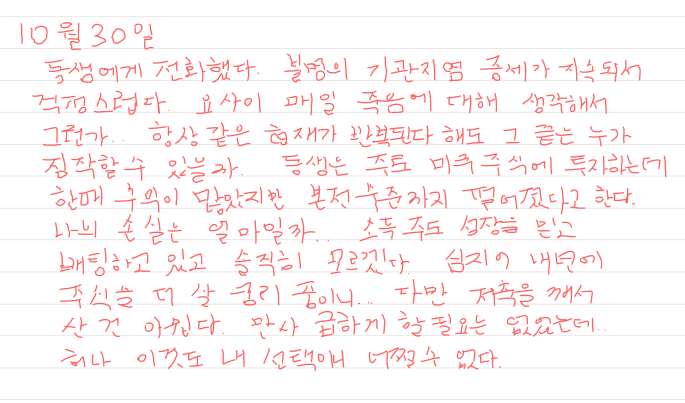 10월 30일
동생에게 전화했다. 불명의 기관지염 증세가 지속되서
걱정스럽다. 요사이 매일 죽음에 대해 생각해서
그런가.. 항상 같은 현재가 반복된다 해도 그 끝은 누가
짐작할 수 있을까. 동생은 주로 미국 주식에 투자하는데
한때 수익이 많았지만 본전 수준까지 떨어졌다고 한다.
나의 손실은 얼마일까.. 소득 주도 성장을 믿고
배팅하고 있고 솔직히 모르겠다. 심지어 내년에
주식을 더 살 궁리 중이니.. 다만 저축을 깨서
산 건 아쉽다. 만사 급하게 할 필요는 없었는데..
허나 이것도 내 선택이니 어쩔 수 없다.